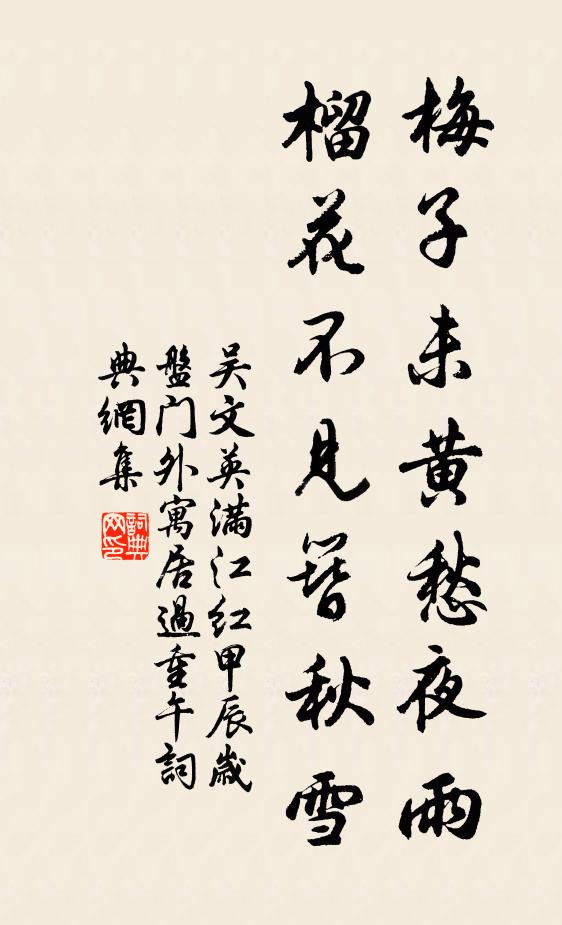 梅子未黄愁夜雨
榴花不見簪秋雪
吴文英满江红甲辰歲
盤门外寓居過重午詞
典網集
詞典
网印